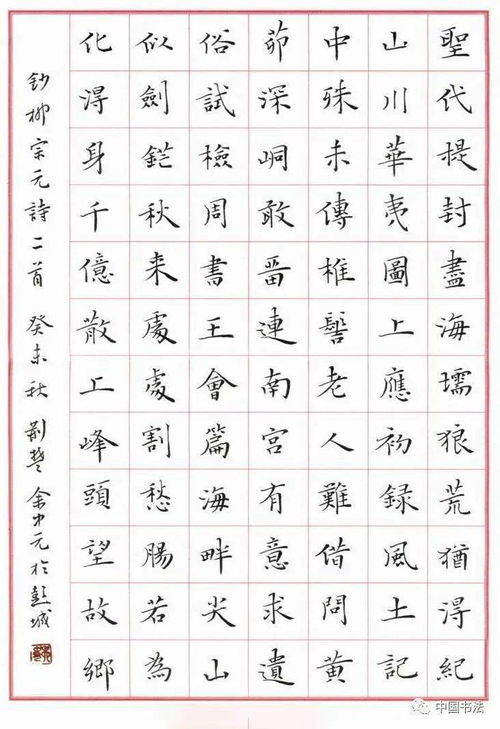 聖代提封盡海壖狼荒猶得紀
山川華夷圖上應初錄風土記
中殊未傳椎髻老人難借問黃
茆深峒敢畱連南宮有意求遺
俗試檢周書王會篇海畔尖山
似劍鋩秋來處處割愁腸若為
化得身千億散上峰頭望故鄉
鈔柳宗元詩二首 癸未秋 荊楚 余中元於彭城
中国书法